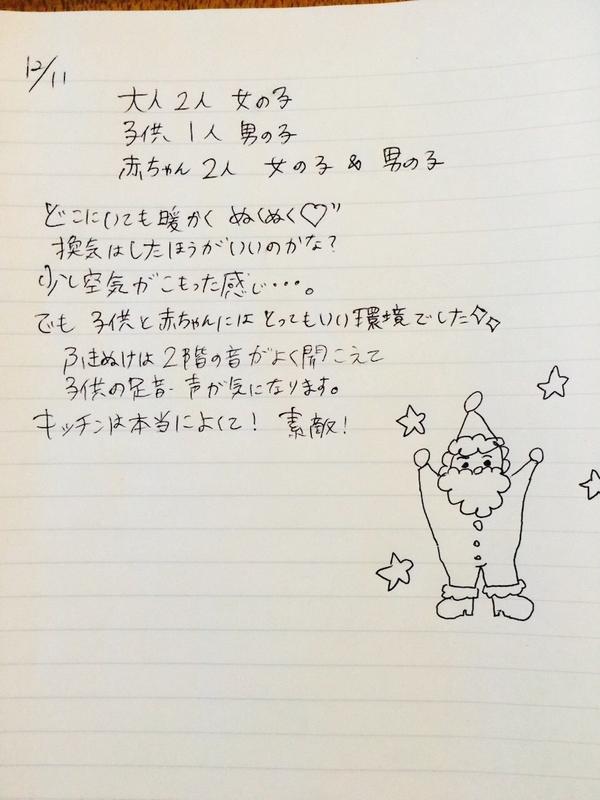 12/11
大人 2人 女の子
子供 1人 男の子
赤ちゃん 2人 女の子 & 男の子
どこにいても暖かく ぬくぬく♡”
換気はしたほうがいいのかな?
少し空気がこもった感じ・・・。
でも 子供と赤ちゃんには とってもいい環境でした✧✧
ふきぬけは 2階の音がよく聞こえて
子供の足音・声が気になります。
キッチンは本当によくて! 素敵!